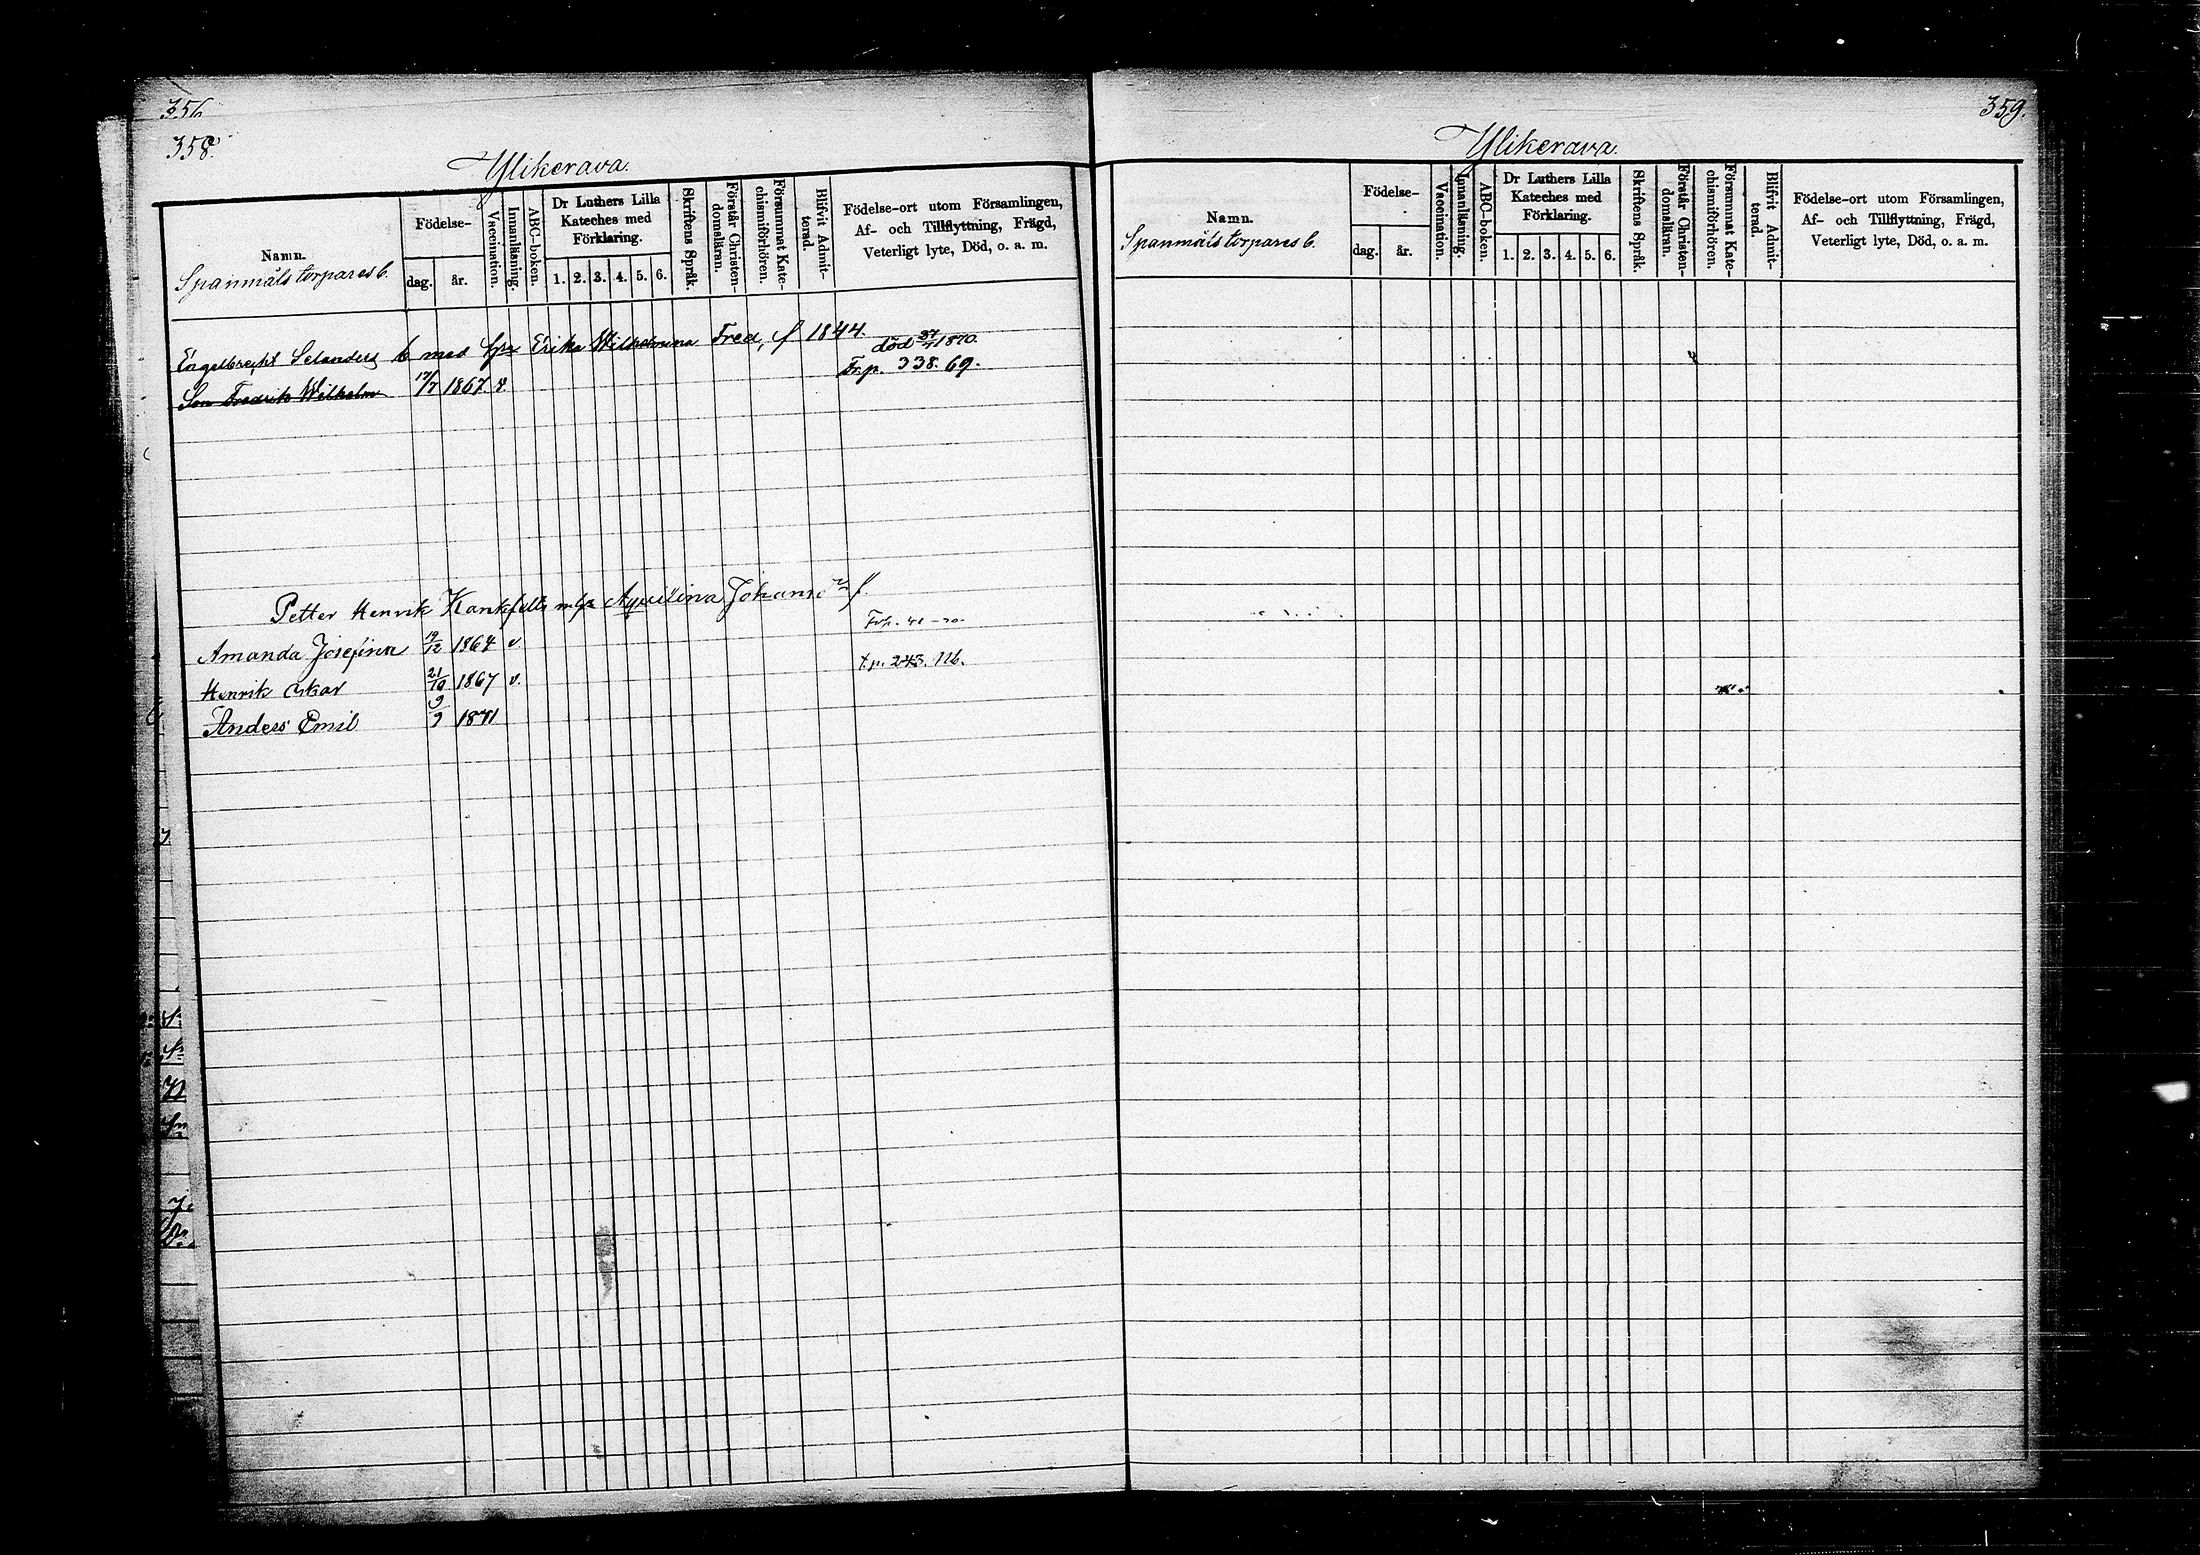 356
358.
Ylikerava.
Namn.
Spanmåls torpares b.
Födelse-
dag. år.
Vaccination.
Innanläsning.
ABC-boken.
Dr Luthers Lilla
Kateches med
Förklaring.
1. 2. 3. 4. 5. 6.
Skriftens Språk.
Förstår Christen-
domsläran.
Försummat Kate-
chismiförhören.
Blifvit Admit-
terad.
Födelse-ort utom Församlingen,
Af- och Tillflyttning, Frägd,
Veterligt lyte, Död, o. a. m.
Engelbrecht Selanders b med Erika Wilhelmina Fred, f 1844.
död 1870.
Son Fredrik Wilhelm 17/7 1867. v. Fr.p. 338. 69.
Petter Henrik Johans
Amanda Josefina 19/12 1864 v
Henrik Oskar 21/10 1867 v.
Anders Emil 9/9 1871
359.
Ylikerava.
Namn.
Spanmåls torpares b.
Födelse-
dag. år.
Vaccination.
Innanläsning.
ABC-boken.
Dr Luthers Lilla
Kateches med
Förklaring.
1. 2. 3. 4. 5. 6.
Skriftens Språk.
Förstår Christen-
domsläran.
Försummat Kate-
chismiförhören.
Blifvit Admit-
terad.
Födelse-ort utom Församlingen,
Af- och Tillflyttning, Frägd,
Veterligt lyte, Död, o. a. m.